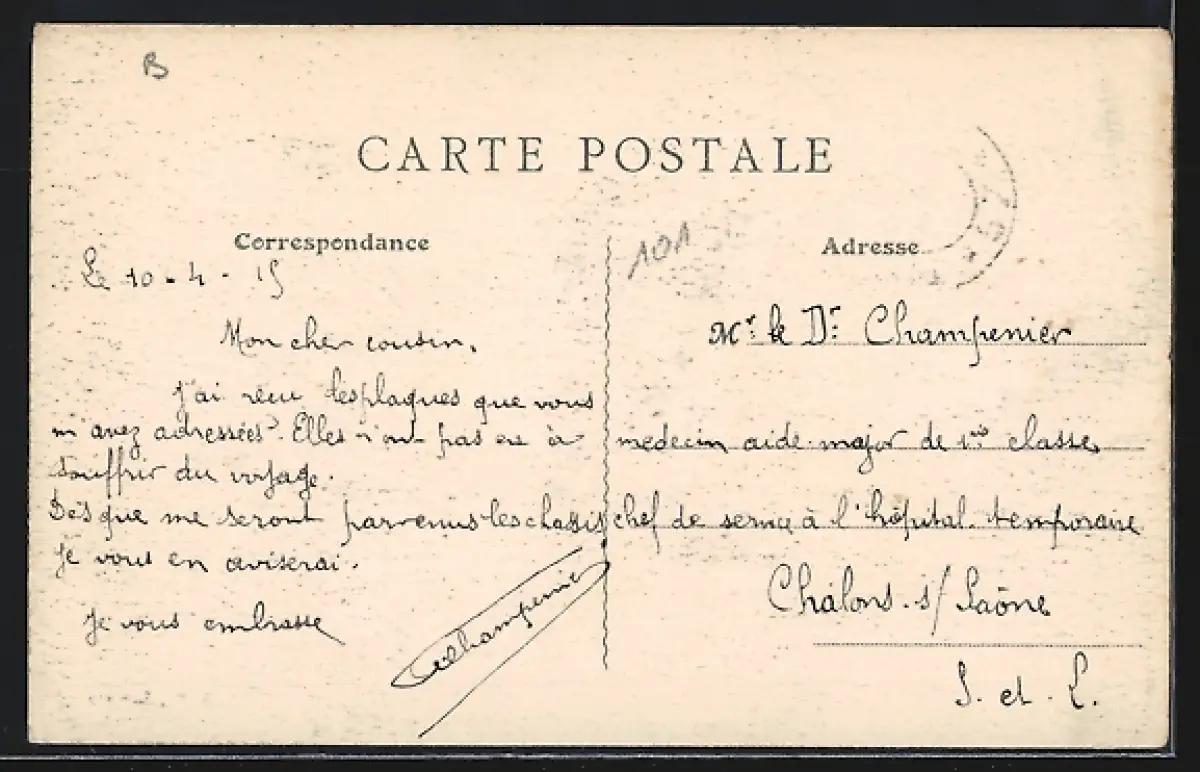 B
CARTE POSTALE
Correspondance
Le 10 - 4 - 15
Mon cher cousin,
J'ai reçu les plaques que vous
m'avez adressées. Elles n'ont pas eu à
souffrir du voyage.
Dès que me seront parvenus les chassis
je vous en aviserai.
Je vous embrasse
Champenier
101
Adresse
Mr. le Dr. Champenier
medecin aide-major de 1re classe
chef de service à l'hôpital temporaire
Chálons. s/ Saône
S. et L.